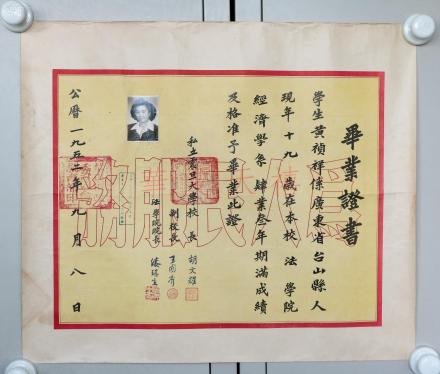 畢業證書
學生黃禎祥係廣東省台山縣人
現年十九歲在本校法學院
經濟學系肄業叁年期滿成績
及格准予畢業此證
私立震旦大學校長 胡文耀
副校長
法學院院長
公曆一九五二年九月八日
為人民服務